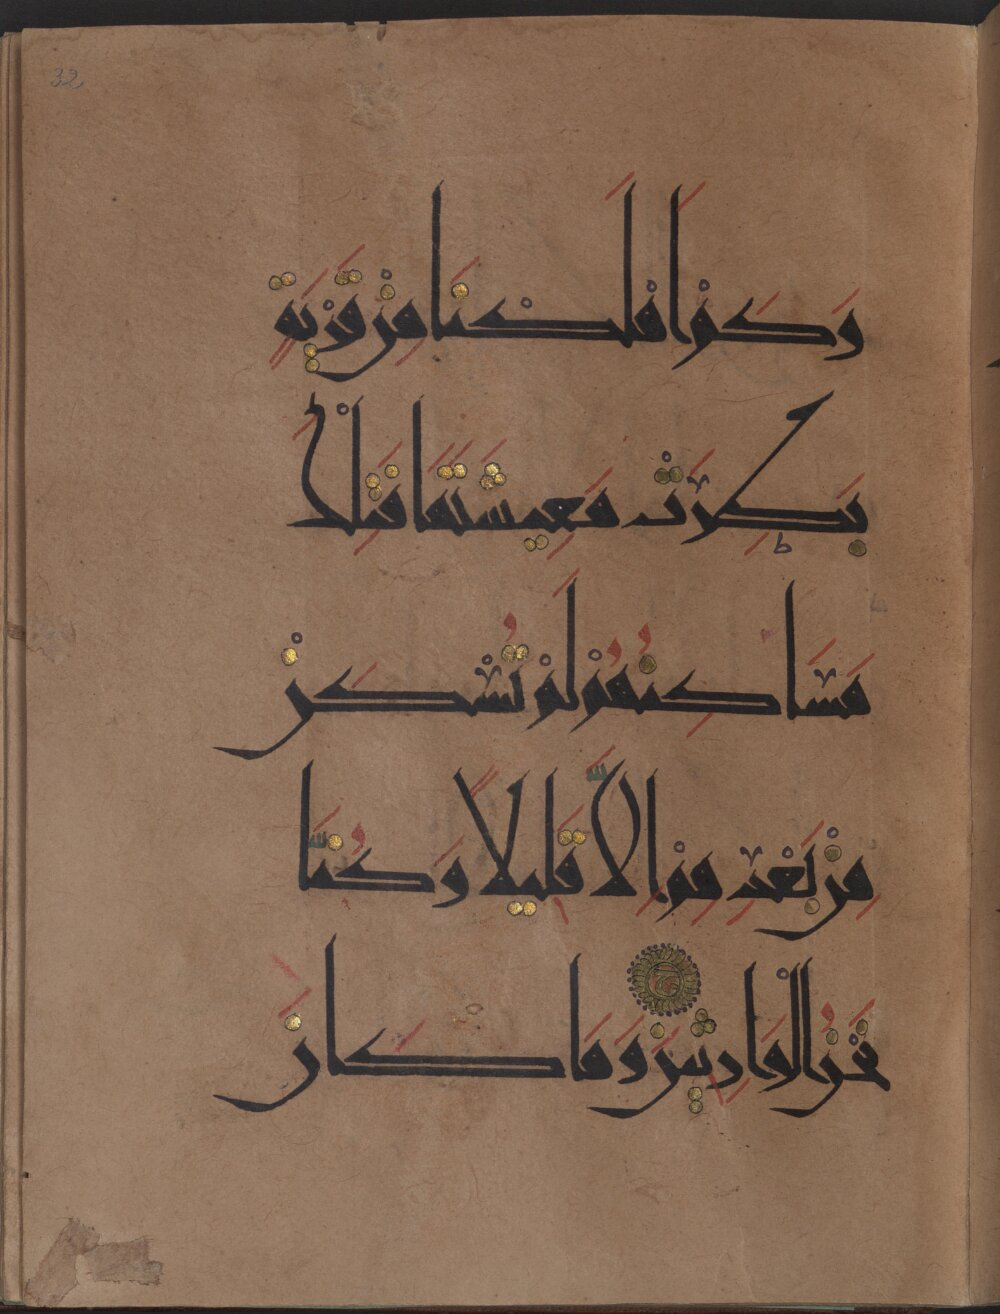 32
وَكَمْ اَهْلَكْنَا مِنْ قَرْيَةٍ
بَطِرَتْ مَعِيشَتَهَا فَتِلْكَ
مَسَاكِنُهُمْ لَمْ تُسْكَنْ
مِنْ بَعْدِهِمْ اِلَّا قَلِيلًا وَكُنَّا
نَحْنُ الْوَارِثِينَ وَمَا كَانَ